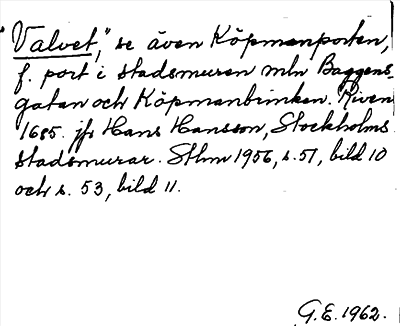 "Valvet," se även Köpmanporten,
f. port i stadsmuren mln Baggens-
gatan och Köpmanbrinken. Riven
1685. jfr Hans Hansson, Stockholms
stadsmurar. Sthm 1956, s. 51, bild 10
och s. 53, bild 11.
G.E. 1962.